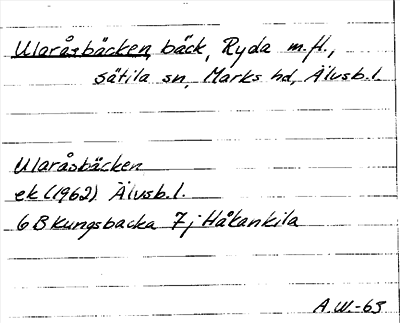 Ularåsbäcken, bäck, Ryda m.fl.,
Sätila sn, Marks hd, Älvsb.l.
Ularåsbäcken
ek (1962) Älvsb.l.
6B Kungsbacka 7j Håkankila
A.W.-63